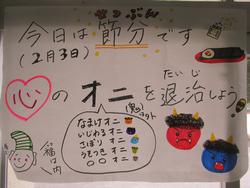 せつぶん
今日は節分です
(2月3日)
たいじ
心のオニを退治しよう
(鬼)
なまけオニ
いじわるオニ
さぼりオニ
うそつきオニ
○○オニ
福は内